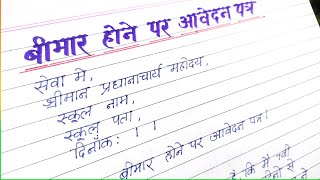 बीमार होने पर आवेदन पत्र
सेवा में,
श्रीमान प्रधानाचार्य महोदय,
स्कूल नाम,
स्कूल पता,
दिनांक: / /
बीमार होने पर आवेदन पत्र।
है, कि मैं